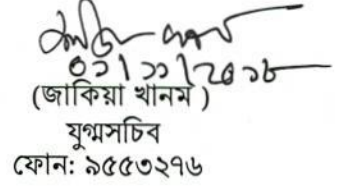 ০১/১১/২০১৮
(জাকিয়া খানম)
যুগ্মসচিব
ফোন: ৯৫৫৩২৭৬